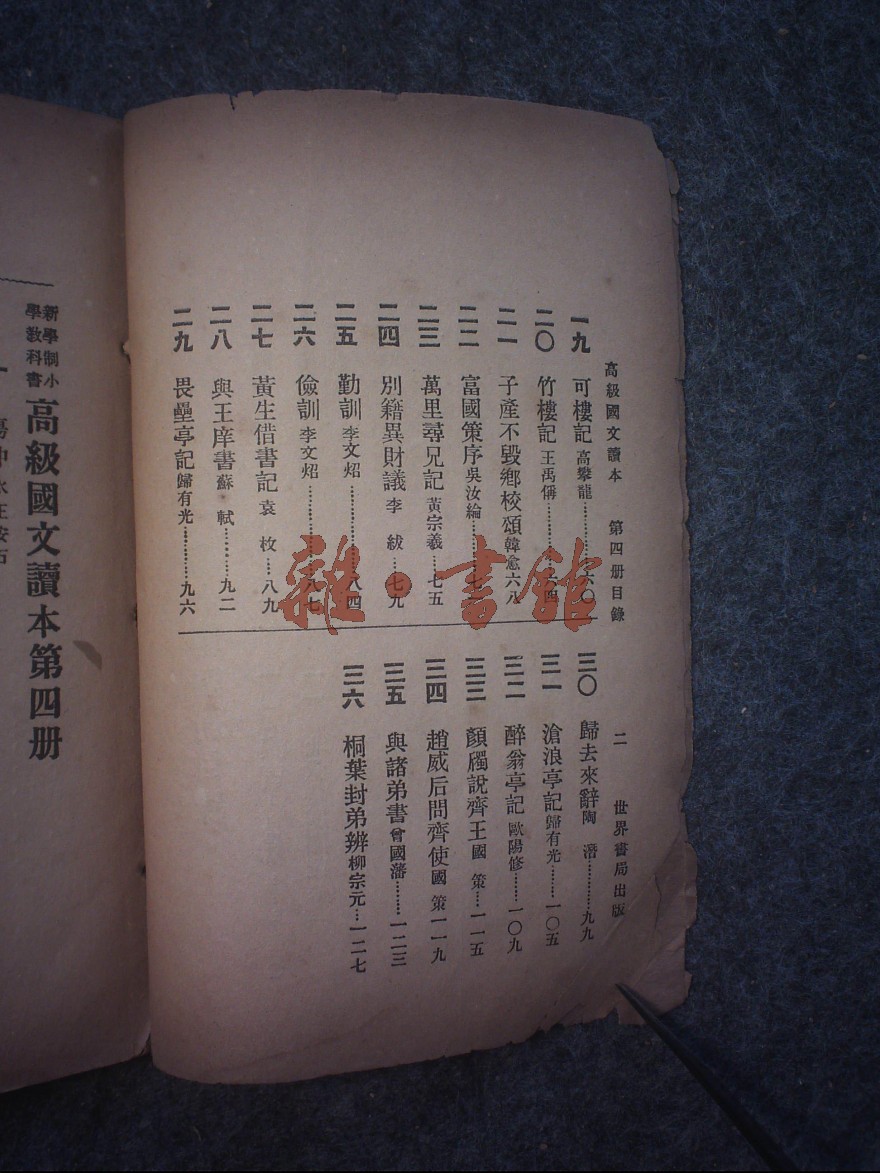 高級國文讀本 第四册目錄 二 世界書局出版
一九 可樓記 高攀龍…………六〇
二〇 竹樓記 王禹偁…………六四
二一 子產不毀鄉校頌 韓愈 六八
二二 富國策序 吳汝綸………七
二三 萬里尋兄記 黃宗羲…七五
二四 別籍異財議 李紱…七九
二五 勤訓 李文炤…………八四
二六 儉訓 李文炤…………八七
二七 黃生借書記 袁枚…八九
二八 與王庠書 蘇軾………九二
二九 畏壘亭記 歸有光………九六
三〇 歸去來辭 陶潛…………九九
三一 滄浪亭記 歸有光………一〇五
三二 醉翁亭記 歐陽修………一〇九
三三 顏斶說齊王 國策…一一五
三四 趙威后問齊使 國策 一一九
三五 與諸弟書 曾國藩………一二三
三六 桐葉封弟辨 柳宗元…一二七
新學制小學教科書 高級國文讀本第四册
一 傷仲永 王安石
雜·書館